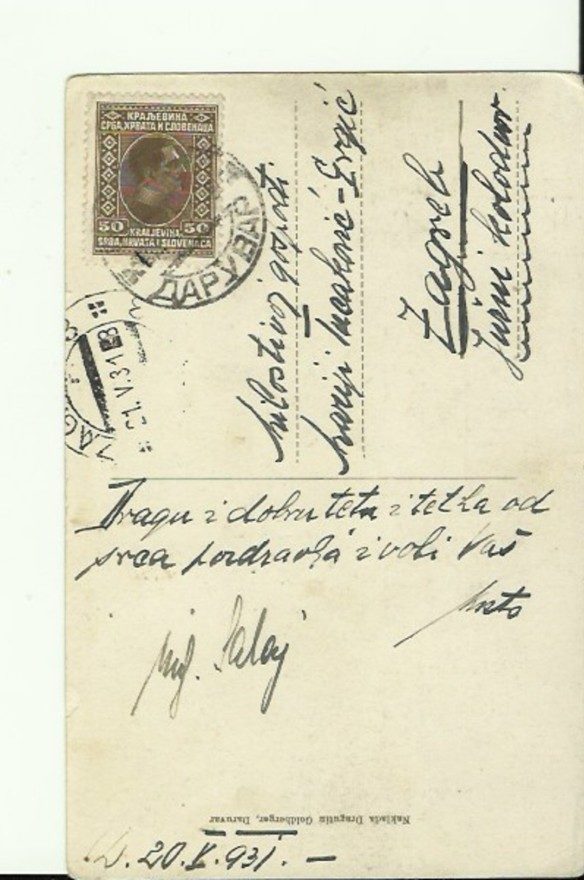 КРАЉЕВИНА
СРБА, ХРВАТА И СЛОВЕНАЦА
50 50
KRALJEVINA
SRBA, HRVATA I SLOVENACA
ДАРУВАР
V.31
Milostivoj gospođi
Mariji
Zagreb
Južni kolodvor
Dragu i dobru tetu i tetka od
srca pozdravlja i voli Vaš
Naklada Dragutin Goldberger, Daruvar
D. 20.V.931. —